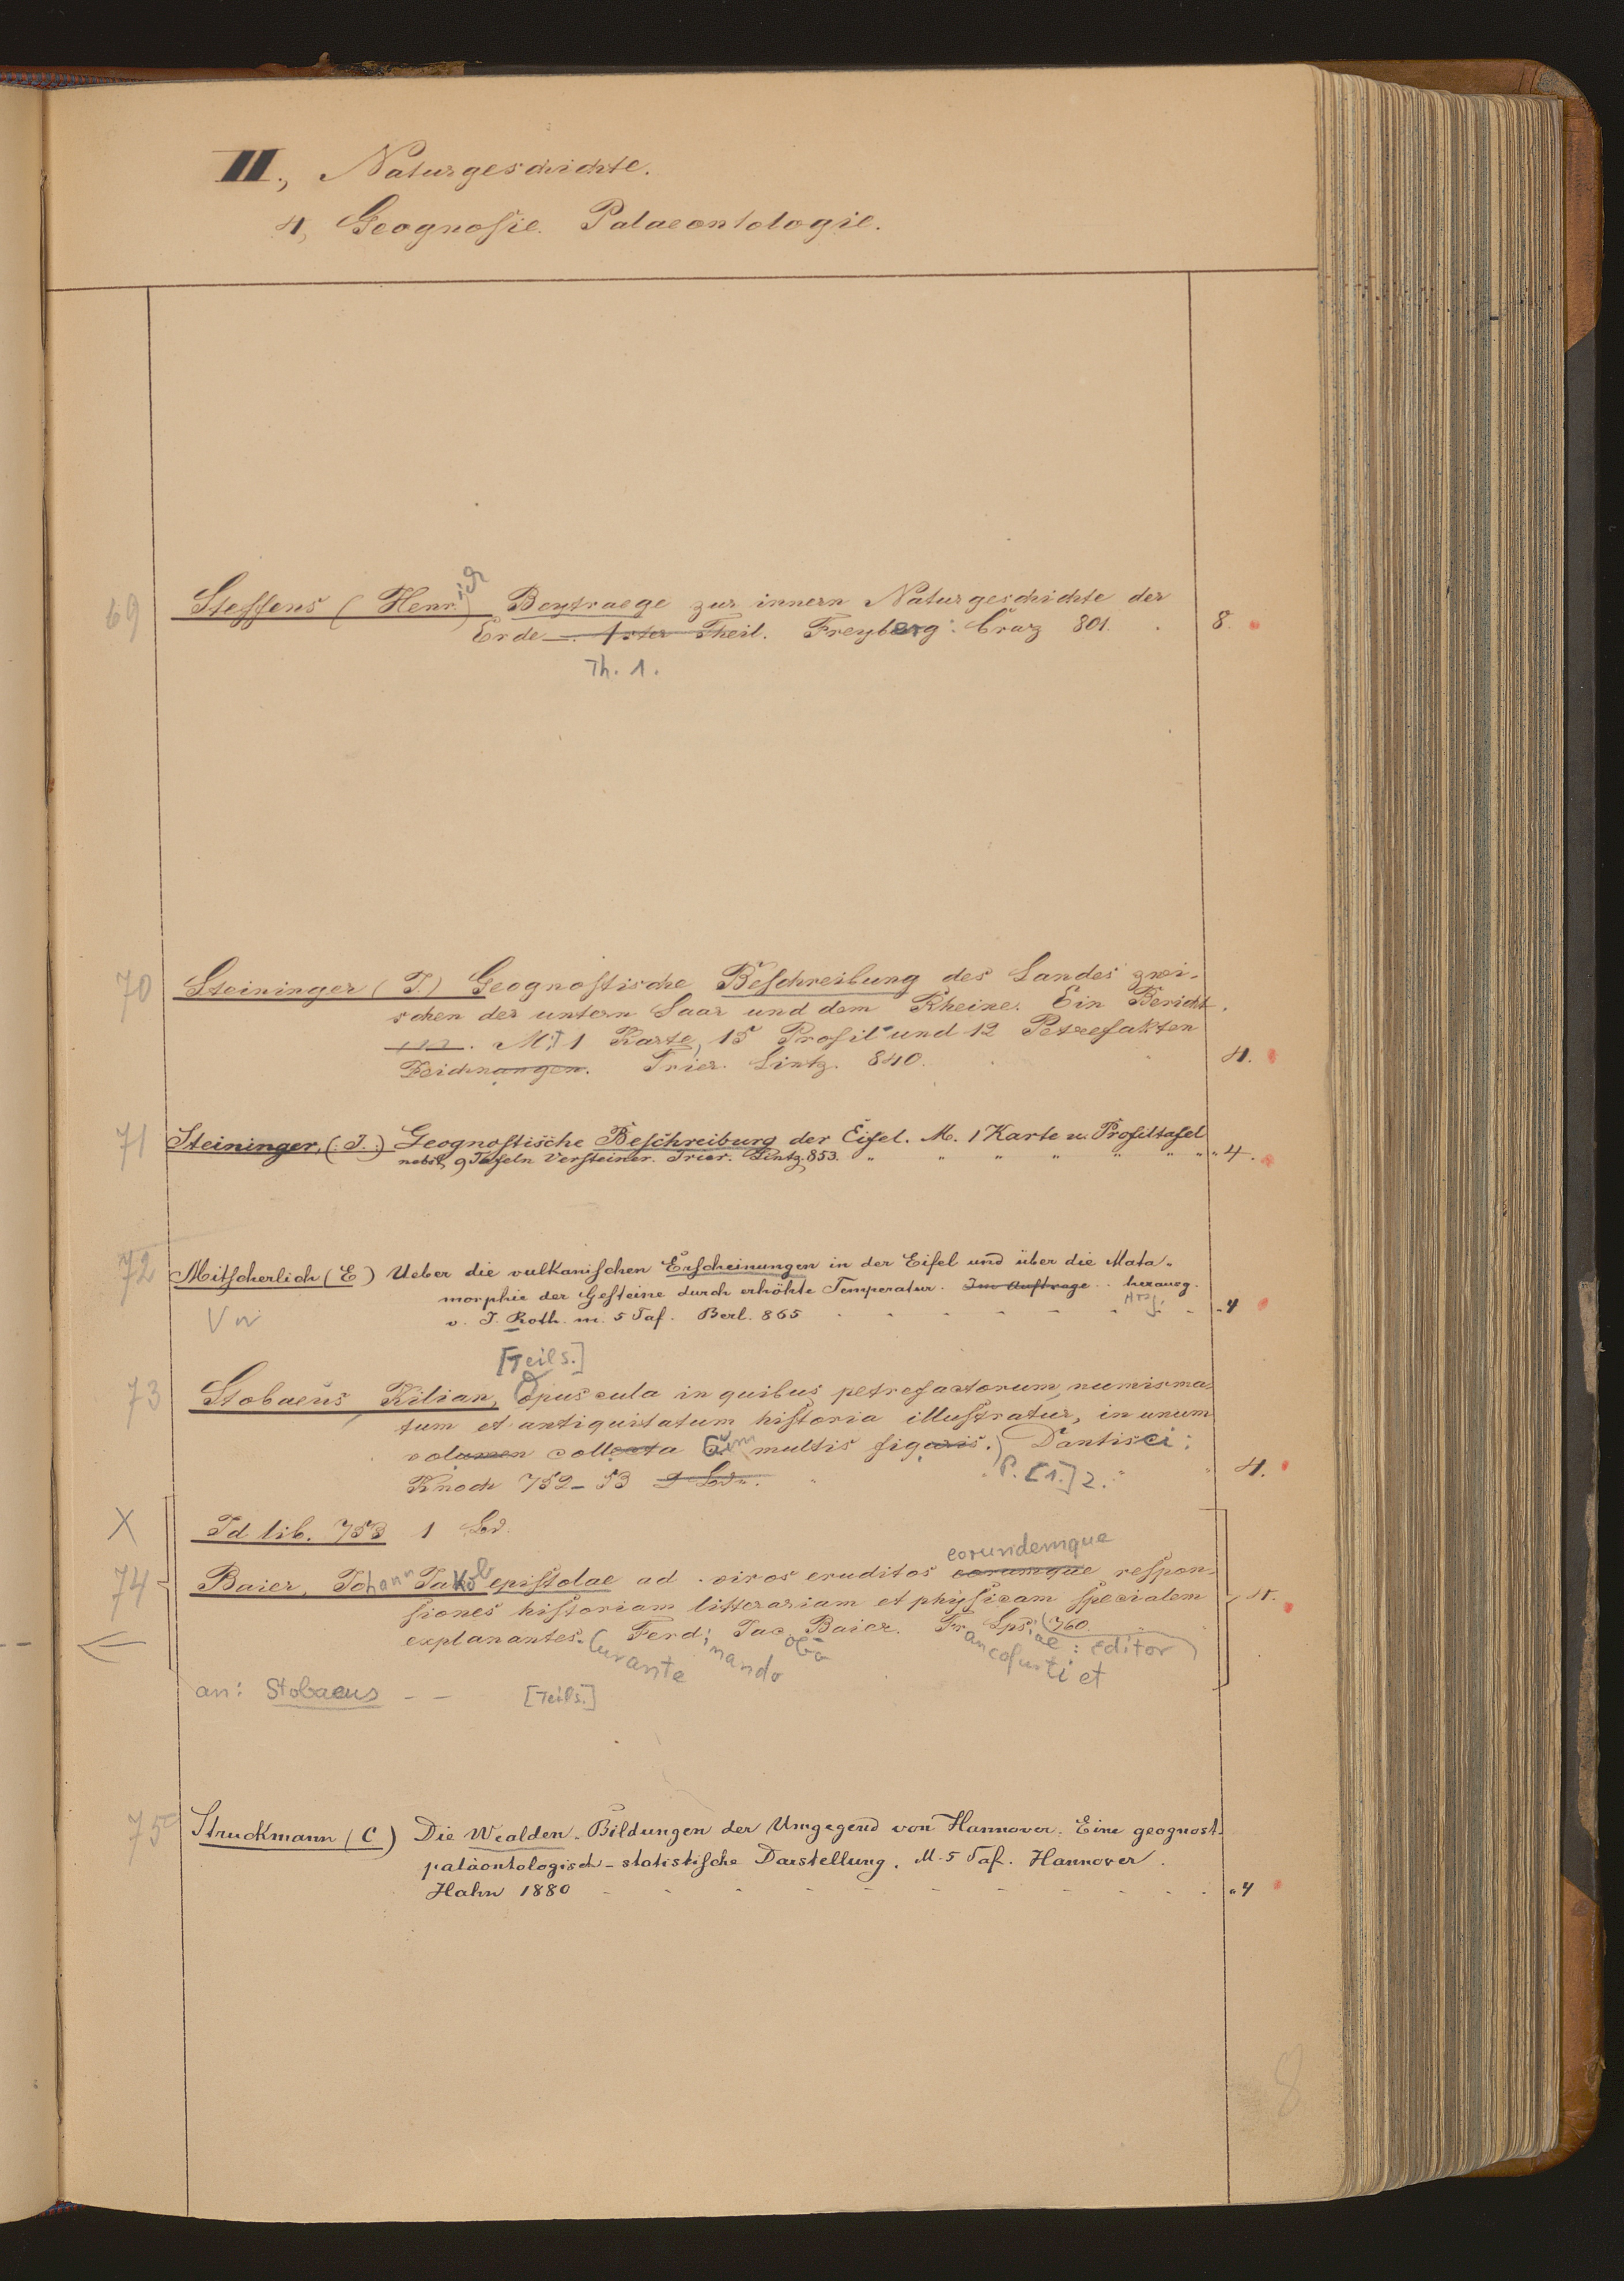 II., Naturgeschichte.
4, Geognosie. Palaeontologie.
69 Steffens (Henrich) Beytraege zur innern Naturgeschichte der
Erde. 1ster Theil. Freyberg: Craz 801. 8.
Th. 1.
70 Steininger (J.) Geognostische Beschreibung des Landes zwi-
schen der untern Saar und dem Rheine. Ein Bericht
M. 1 Karte, 15 Profil- und 12 Petrefakten
Zeichnungen. Trier. Lintz. 840. 4.
71 Steininger, (J.) Geognostische Beschreibung der Eifel. M. 1 Karte u. Profiltafel
nebst 9 Tafeln Versteiner. Trier. Lintz. 853. " " " " " " " " 4.
72 Mitscherlich (E) Ueber die vulkanischen Erscheinungen in der Eifel und über die Mata-
morphie der Gesteine durch erhöhte Temperatur. Im Auftrage .. herausg.
Hrsg.
v. J. Roth. m. 5 Taf. Berl. 865 - - - - - - - 4
[Teils.]
73 Stobaeus Kilian, Opuscula in quibus petrefactorum, numisma-
tum et antiquitatum historia illustratur, in unum
volumen collecta cum multis figuris. Dantisci:
Knoch 752-53 2 Bde. P. [1.] 2. 4.
X Id lib. 753 1 Bd.
eorundemque
74 Baier, Johann Jakob epistolae ad viros eruditos eorumque respon-
siones historiam litterariam et physicam specialem 4.
explanantes. Curante Ferdinando Jacobo Baier. Francofurti et Lpsiae: Editor 760.
an: Stobaeus - - [Teils.]
75 Struckmann (C) Die Wealden-Bildungen der Umgegend von Hannover. Eine geognost.
paläontologisch-statistische Darstellung. M. 5 Taf. Hannover.
Hahn 1880 - - - - - - - - - - 4
8